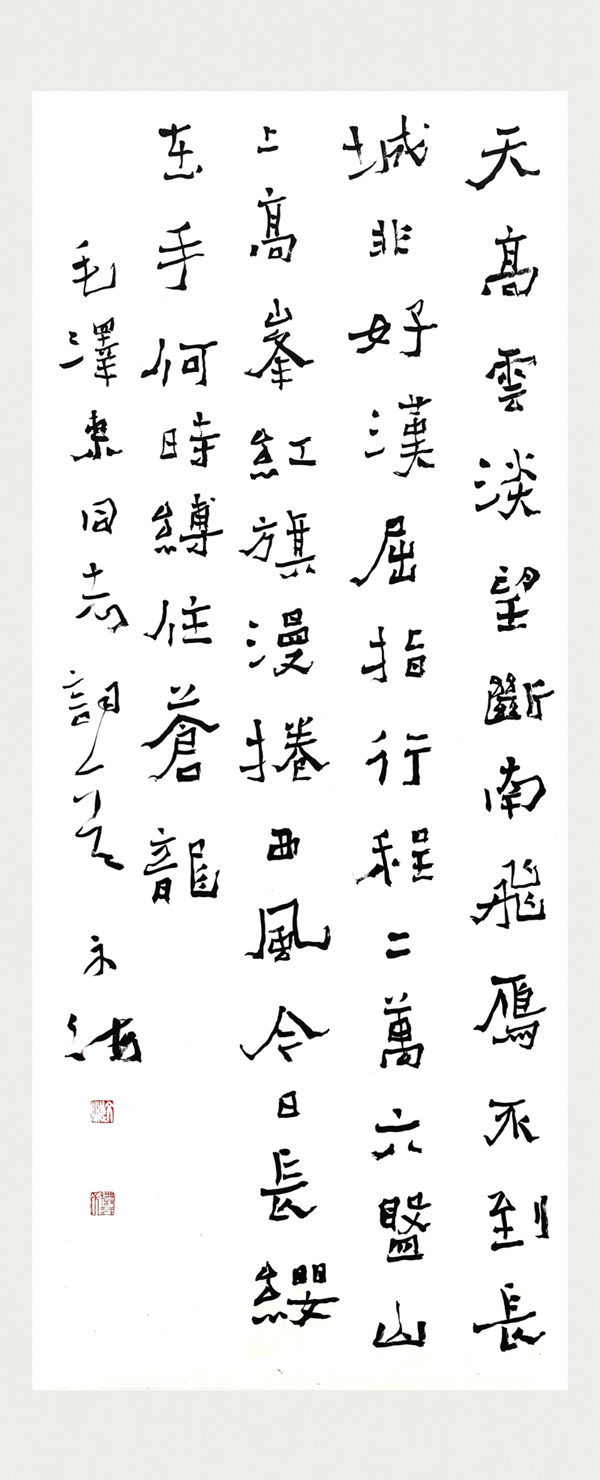 天高雲淡望斷南飛鴈不到長
城非好漢屈指行程二萬六盤山
上高峯紅旗漫捲西風今日長纓
在手何時縛住蒼龍
毛澤東同志詞一首